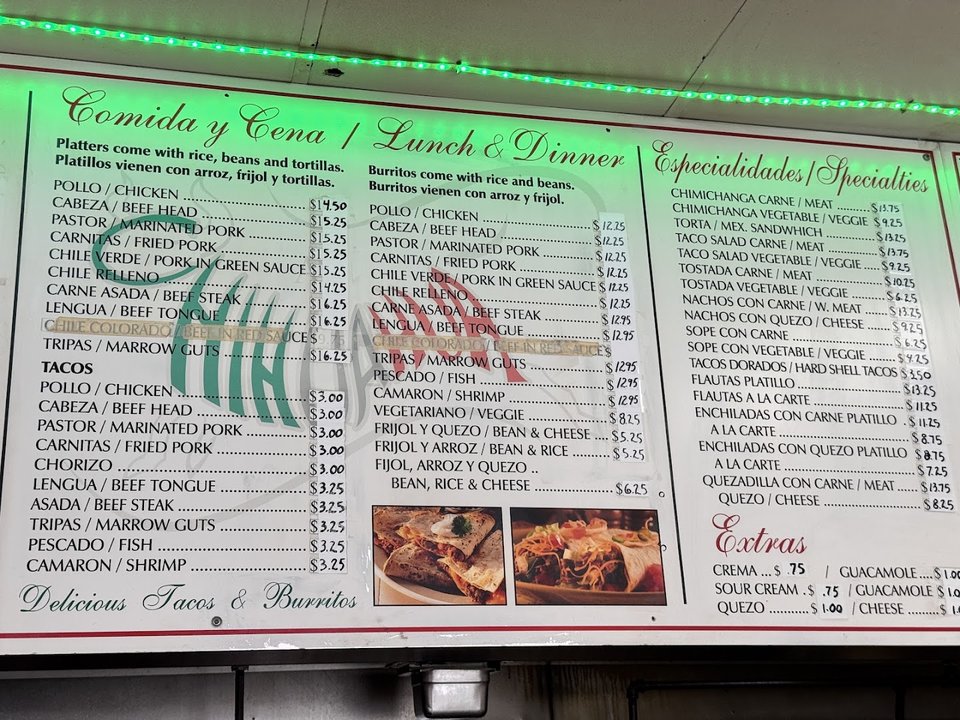 Comida y Cena / Lunch & Dinner
Platters come with rice, beans and tortillas.
Platillos vienen con arroz, frijol y tortillas.
POLLO / CHICKEN $14.50
CABEZA / BEEF HEAD $15.25
PASTOR / MARINATED PORK $15.25
CARNITAS / FRIED PORK $15.25
CHILE VERDE / PORK IN GREEN SAUCE $15.25
CHILE RELLENO $14.25
CARNE ASADA / BEEF STEAK $16.25
LENGUA / BEEF TONGUE $16.25
CHILE COLORADO / BEEF IN RED SAUCE $
TRIPAS / MARROW GUTS $16.25
TACOS
POLLO / CHICKEN $3.00
CABEZA / BEEF HEAD $3.00
PASTOR / MARINATED PORK $3.00
CARNITAS / FRIED PORK $3.00
CHORIZO $3.00
LENGUA / BEEF TONGUE $3.25
ASADA / BEEF STEAK $3.25
TRIPAS / MARROW GUTS $3.25
PESCADO / FISH $3.25
CAMARON / SHRIMP $3.25
Delicious Tacos & Burritos
Burritos come with rice and beans.
Burritos vienen con arroz y frijol.
POLLO / CHICKEN $12.25
CABEZA / BEEF HEAD $12.25
PASTOR / MARINATED PORK $12.25
CARNITAS / FRIED PORK $12.25
CHILE VERDE / PORK IN GREEN SAUCE $12.25
CHILE RELLENO $12.25
CARNE ASADA / BEEF STEAK $12.95
LENGUA / BEEF TONGUE $12.95
CHILE COLORADO / BEEF IN RED SAUCE $
TRIPAS / MARROW GUTS $12.95
PESCADO / FISH $12.95
CAMARON / SHRIMP $12.95
VEGETARIANO / VEGGIE $8.25
FRIJOL Y QUEZO / BEAN & CHEESE $5.25
FRIJOL Y ARROZ / BEAN & RICE $5.25
FIJOL, ARROZ Y QUEZO ..
BEAN, RICE & CHEESE $6.25
Especialidades / Specialties
CHIMICHANGA CARNE / MEAT $13.75
CHIMICHANGA VEGETABLE / VEGGIE $9.25
TORTA / MEX. SANDWHICH $13.25
TACO SALAD CARNE / MEAT $13.75
TACO SALAD VEGETABLE / VEGGIE $9.25
TOSTADA CARNE / MEAT $10.25
TOSTADA VEGETABLE / VEGGIE $6.25
NACHOS CON CARNE / W. MEAT $13.25
NACHOS CON QUEZO / CHEESE $9.25
SOPE CON CARNE $6.25
SOPE CON VEGETABLE / VEGGIE $4.25
TACOS DORADOS / HARD SHELL TACOS $3.50
FLAUTAS PLATILLO $13.25
FLAUTAS A LA CARTE $11.25
ENCHILADAS CON CARNE PLATILLO $11.25
A LA CARTE $8.75
ENCHILADAS CON QUEZO PLATILLO $8.75
A LA CARTE $7.25
QUEZADILLA CON CARNE / MEAT $13.75
QUEZO / CHEESE $8.25
Extras
CREMA ... $ .75 / GUACAMOLE .... $1.00
SOUR CREAM . $ .75 / GUACAMOLE $
QUEZO $1.00 / CHEESE $